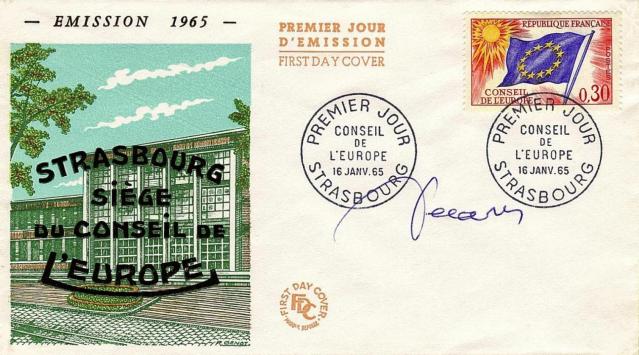 — EMISSION 1965 —
PREMIER JOUR
D'EMISSION
FIRST DAY COVER
RÉPUBLIQUE FRANÇAISE
POSTES
CONSEIL
DE L'EUROPE
0,30
PREMIER JOUR
CONSEIL
DE
L'EUROPE
16 JANV. 65
STRASBOURG
PREMIER JOUR
CONSEIL
DE
L'EUROPE
16 JANV. 65
STRASBOURG
STRASBOURG
SIÈGE
DU CONSEIL DE
L'EUROPE
FIRST DAY COVER
FDC